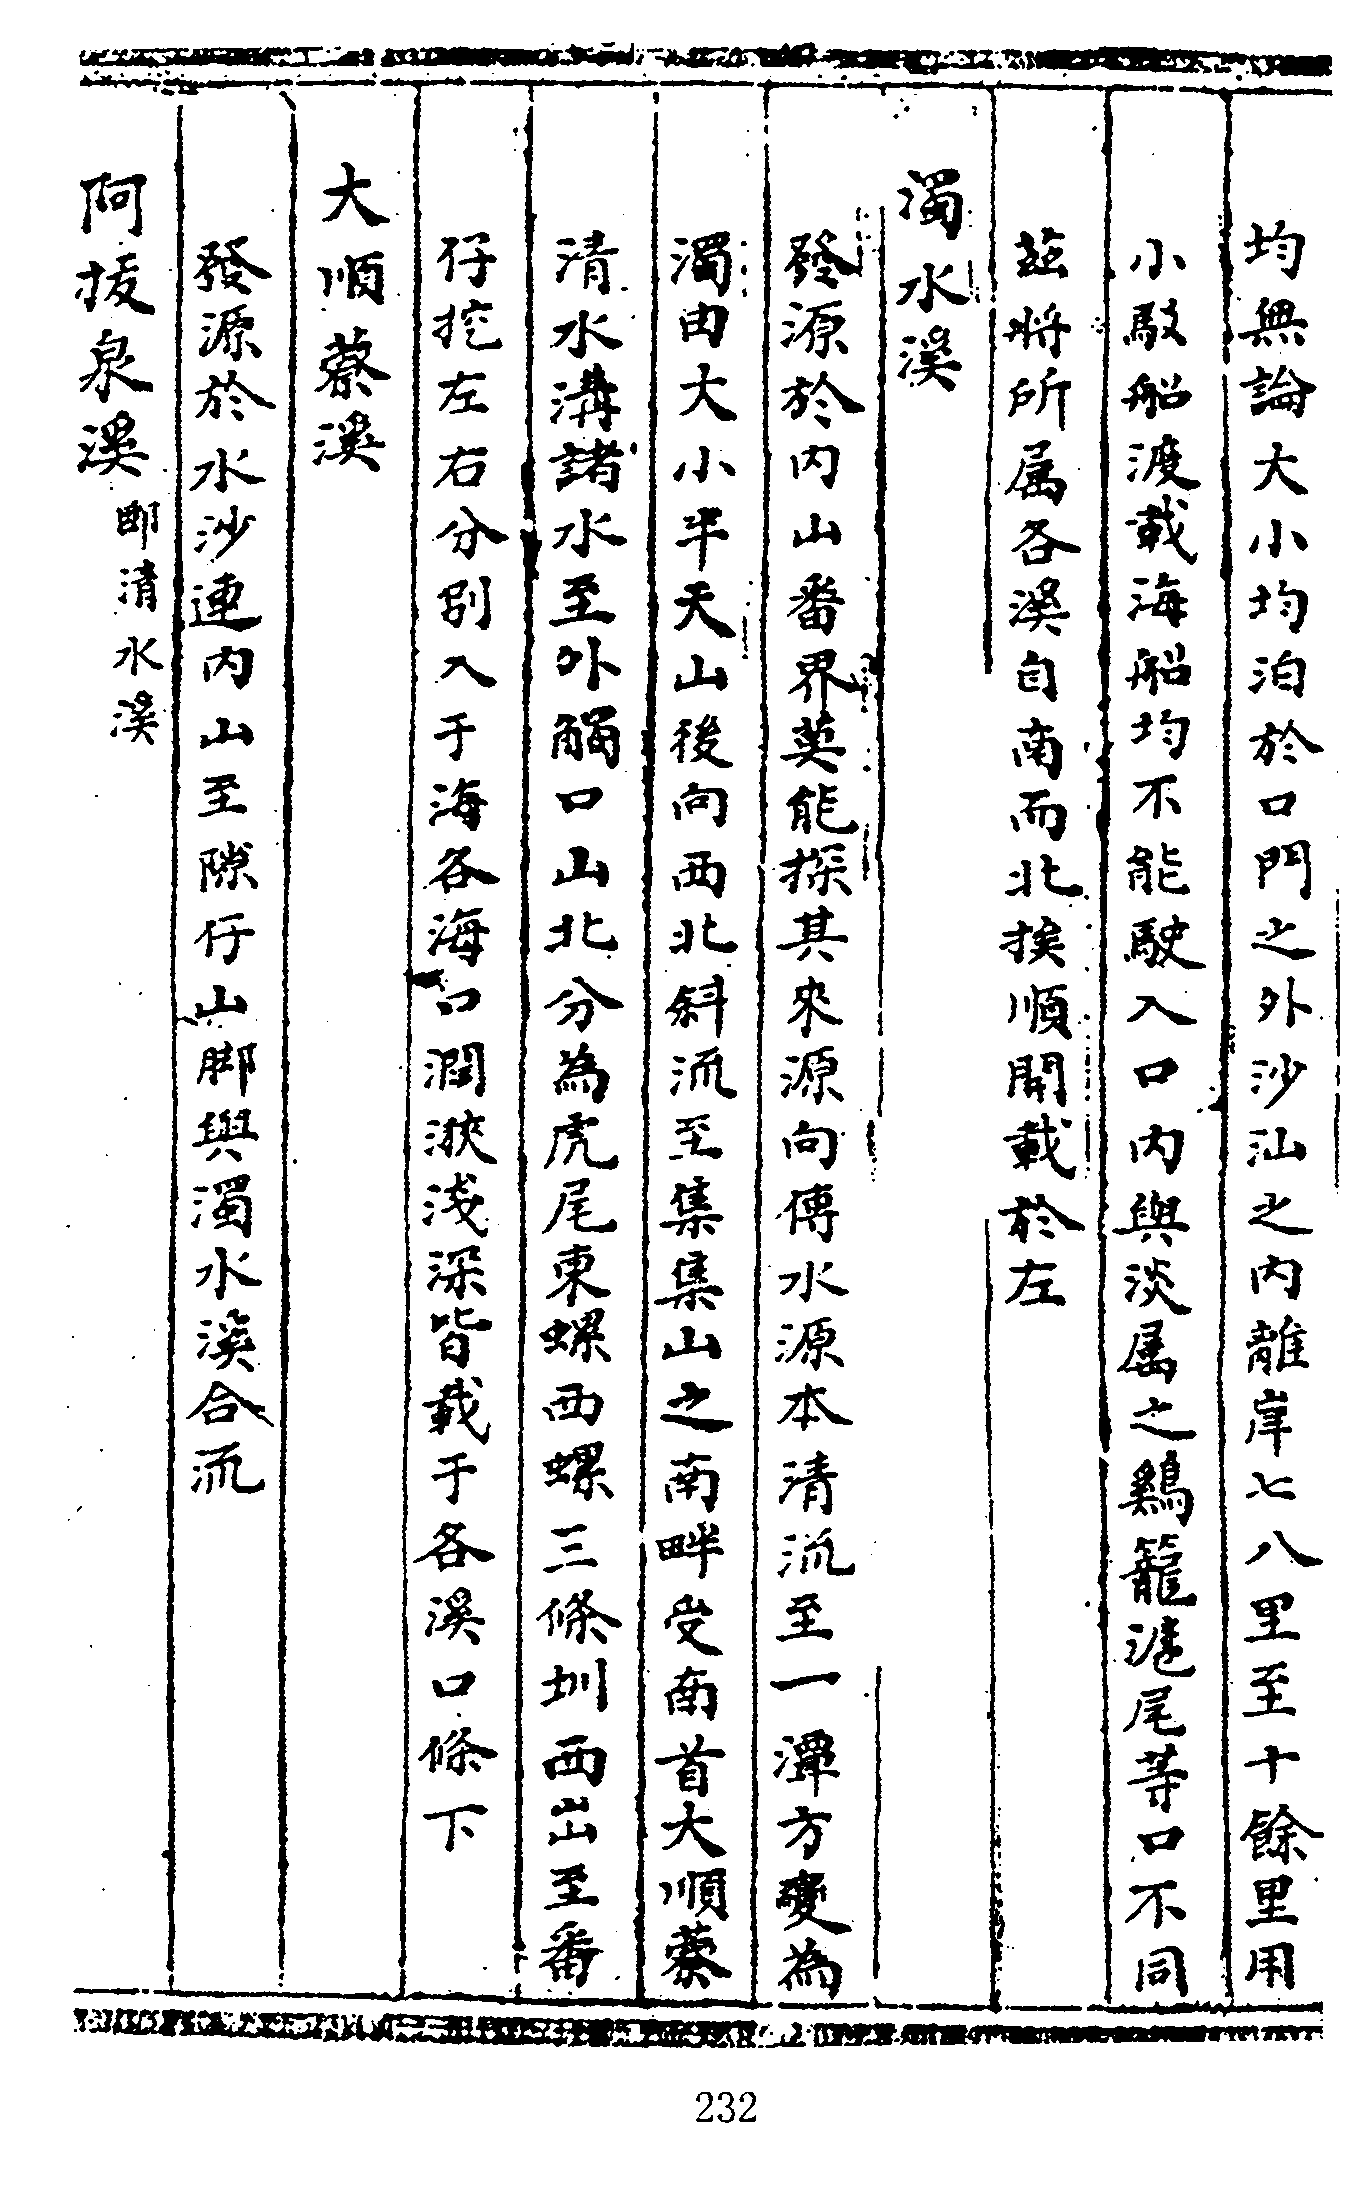 均無論大小均泊於口門之外沙汕之內離岸七八里至十餘里用
小駁船渡載海船均不能駛入口內與淡属之鷄籠滬尾等口不同
茲將所属各溪自南而北挨順開載於左
濁水溪
發源於內山番界莫能探其來源向傳水源本清流至一潭方變為
濁由大小半天山後向西北斜流至集集山之南畔受南首大順蔡
清水溝諸水至外觸口山北分為虎尾東螺西螺三條圳西出至番
仔挖左右分別入于海各海口濶狹淺深皆載于各溪口條下
大順蔡溪
發源於水沙連內山至隙仔山脚與濁水溪合流
阿拔泉溪 即清水溪
232